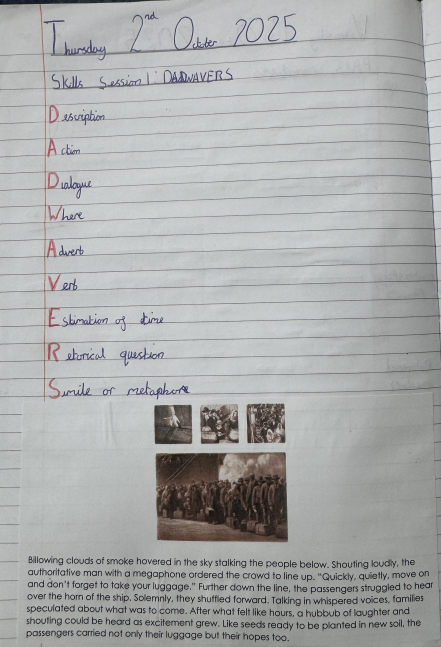 Thursday 2nd October 2025
Skills Session 1: DADWAVERS
Description
Action
Dialogue
Where
Adverb
Verb
Estimation of time
Retorical question
Simile or metaphore
Billowing clouds of smoke hovered in the sky stalking the people below. Shouting loudly, the
authoritative man with a megaphone ordered the crowd to line up. "Quickly, quietly, move on
and don't forget to take your luggage." Further down the line, the passengers struggled to hear
over the horn of the ship. Solemnly, they shuffled forward. Talking in whispered voices, families
speculated about what was to come. After what felt like hours, a hubbub of laughter and
shouting could be heard as excitement grew. Like seeds ready to be planted in new soil, the
passengers carried not only their luggage but their hopes too.